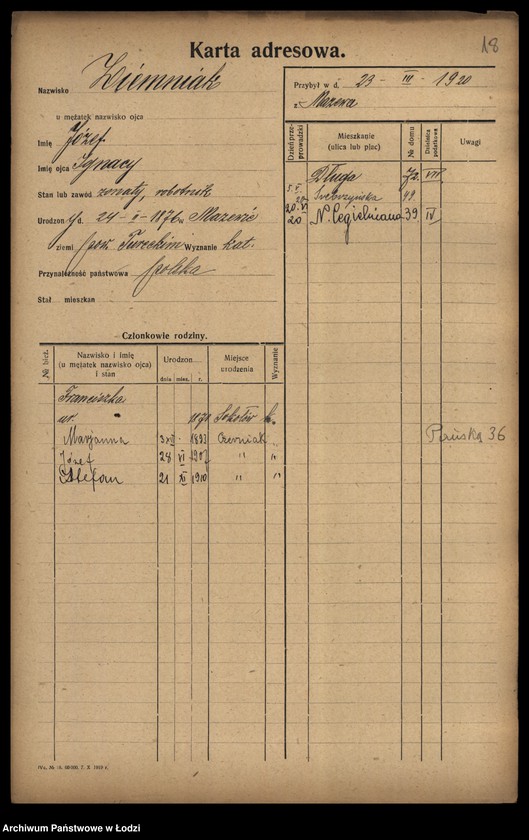 18
Karta adresowa.
Nazwisko Ziemniak
u mężatek nazwisko ojca
Imię Józef
Imię ojca Ignacy
Stan lub zawód żonaty, robotnik
Urodzon y d. 24 - I - 1876 r. Mazewie
ziemi pow. Tureckim Wyznanie kat.
Przynależność państwowa polska
Stał mieszkan
Przybył w d. 23 - III - 1920
z Mazewa
Dzień przeprowadzki
Mieszkanie
(ulica lub plac)
№ domu
Dzielnica podatkowa
Uwagi
Długa 72 VII
5.V. 20 Srebrzyńska 49
20.VI 20 N. Cegielniana 39 IV
Pańska 36
Członkowie rodziny.
№ bież.
Nazwisko i imię
(u mężatek nazwisko ojca)
i stan
Urodzon
dnia mies. r.
Miejsce
urodzenia
Wyznanie
Franciszka
ur. 1871 Sokołów k.
Marjanna 3 1893 "
Józef 28 VI 1907 " "
Stefan 21 XI 1910 " "
7. X. 1919 r.
Archiwum Państwowe w Łodzi